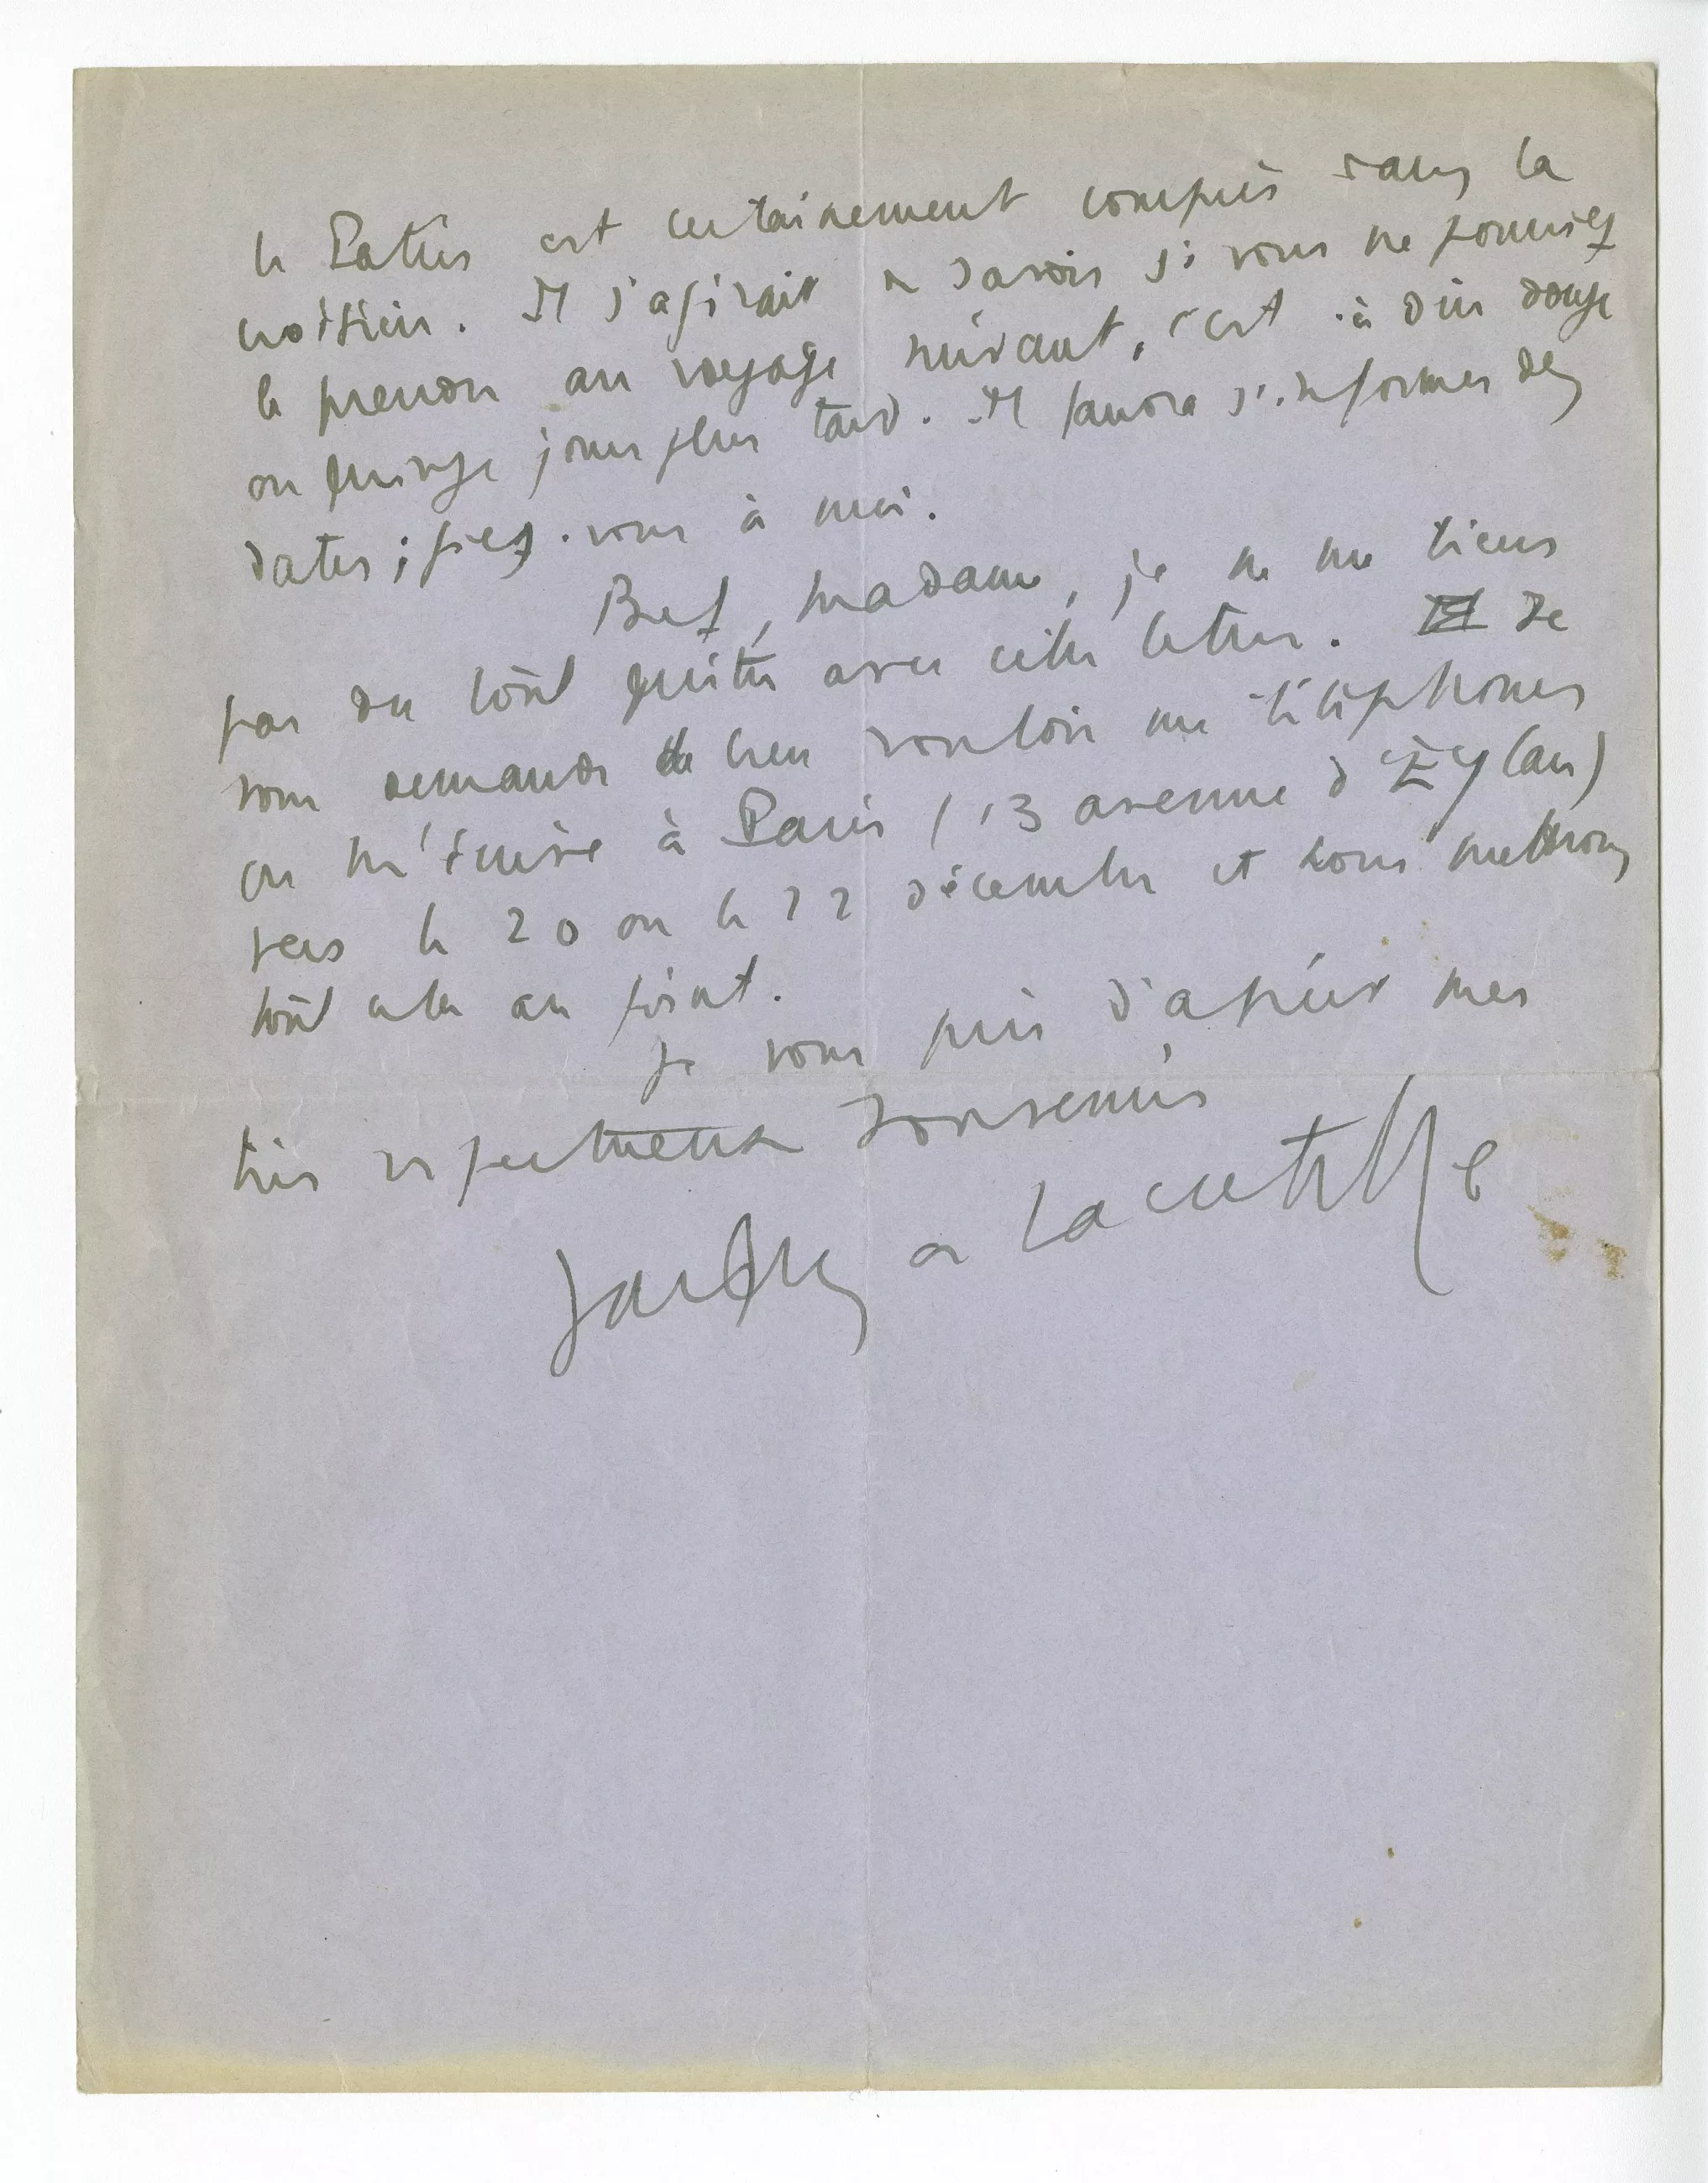 le Patris est certainement compris dans la
croisière. Il s'agirait de savoir si vous ne pourriez
le prendre au voyage suivant, c'est-à-dire douze
ou quinze jours plus tard. Il faudra s'informer des
dates ; fiez-vous à moi.
Bref, madame, je ne me tiens
pas du tout quitte avec cette lettre. Je
vous demande de bien vouloir me téléphoner
ou m'écrire à Paris (13 avenue d'Eylau)
vers le 20 ou le 22 décembre et nous mettrons
tout cela au point.
Je vous prie d'agréer mes
très respectueux souvenirs
Jacques de Lacretelle